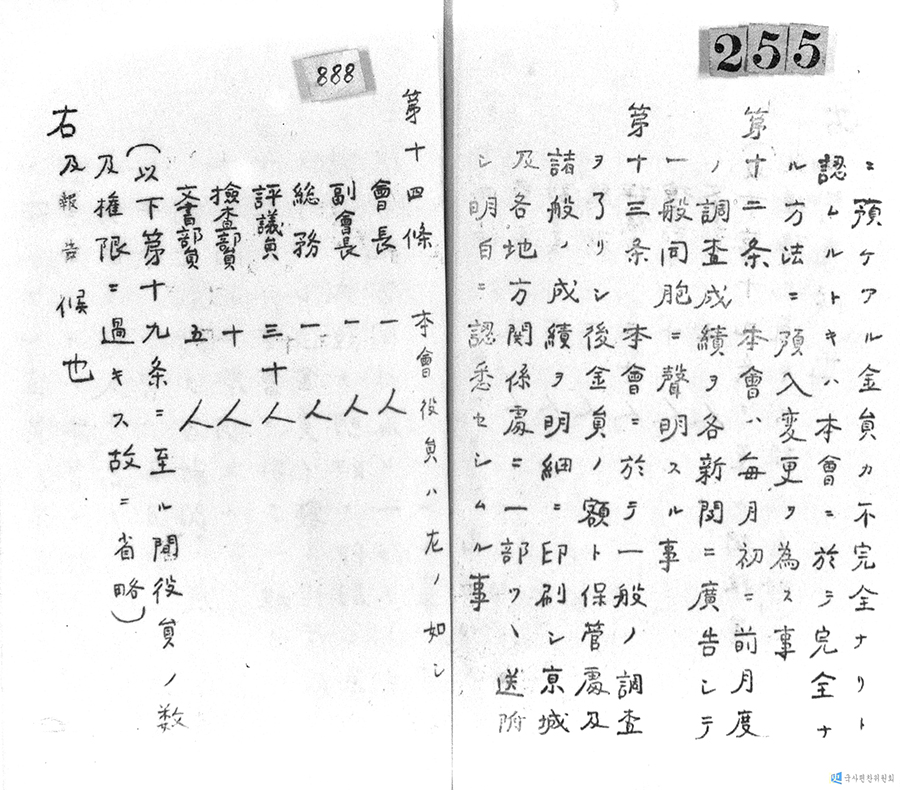 255
ニ預ケアル金員カ不完全ナリト
認ムルトキハ本會ニ於テ完全ナ
ル方法ニ預入変更ヲ為ス事
第十二条 本會ハ毎月初ニ前月度
ノ調査成績ヲ各新聞ニ廣告シテ
一般同胞ニ聲明スル事
第十三条 本會ニ於テ一般ノ調査
ヲ了リシ後金員ノ額ト保管處及
諸般ノ成績ヲ明細ニ印刷シ京城
及各地方関係處ニ一部ツヽ送附
シ明白ニ認悉セシムル事
888
第十四條 本會役員ハ左ノ如シ
會長 一人
副會長 一人
総務 一人
評議員 三十人
檢査部員 十人
文書部員 五人
(以下第十九条ニ至ル間役員ノ数
及権限ニ過キス故ニ省略)
右及報告候也
국사편찬위원회